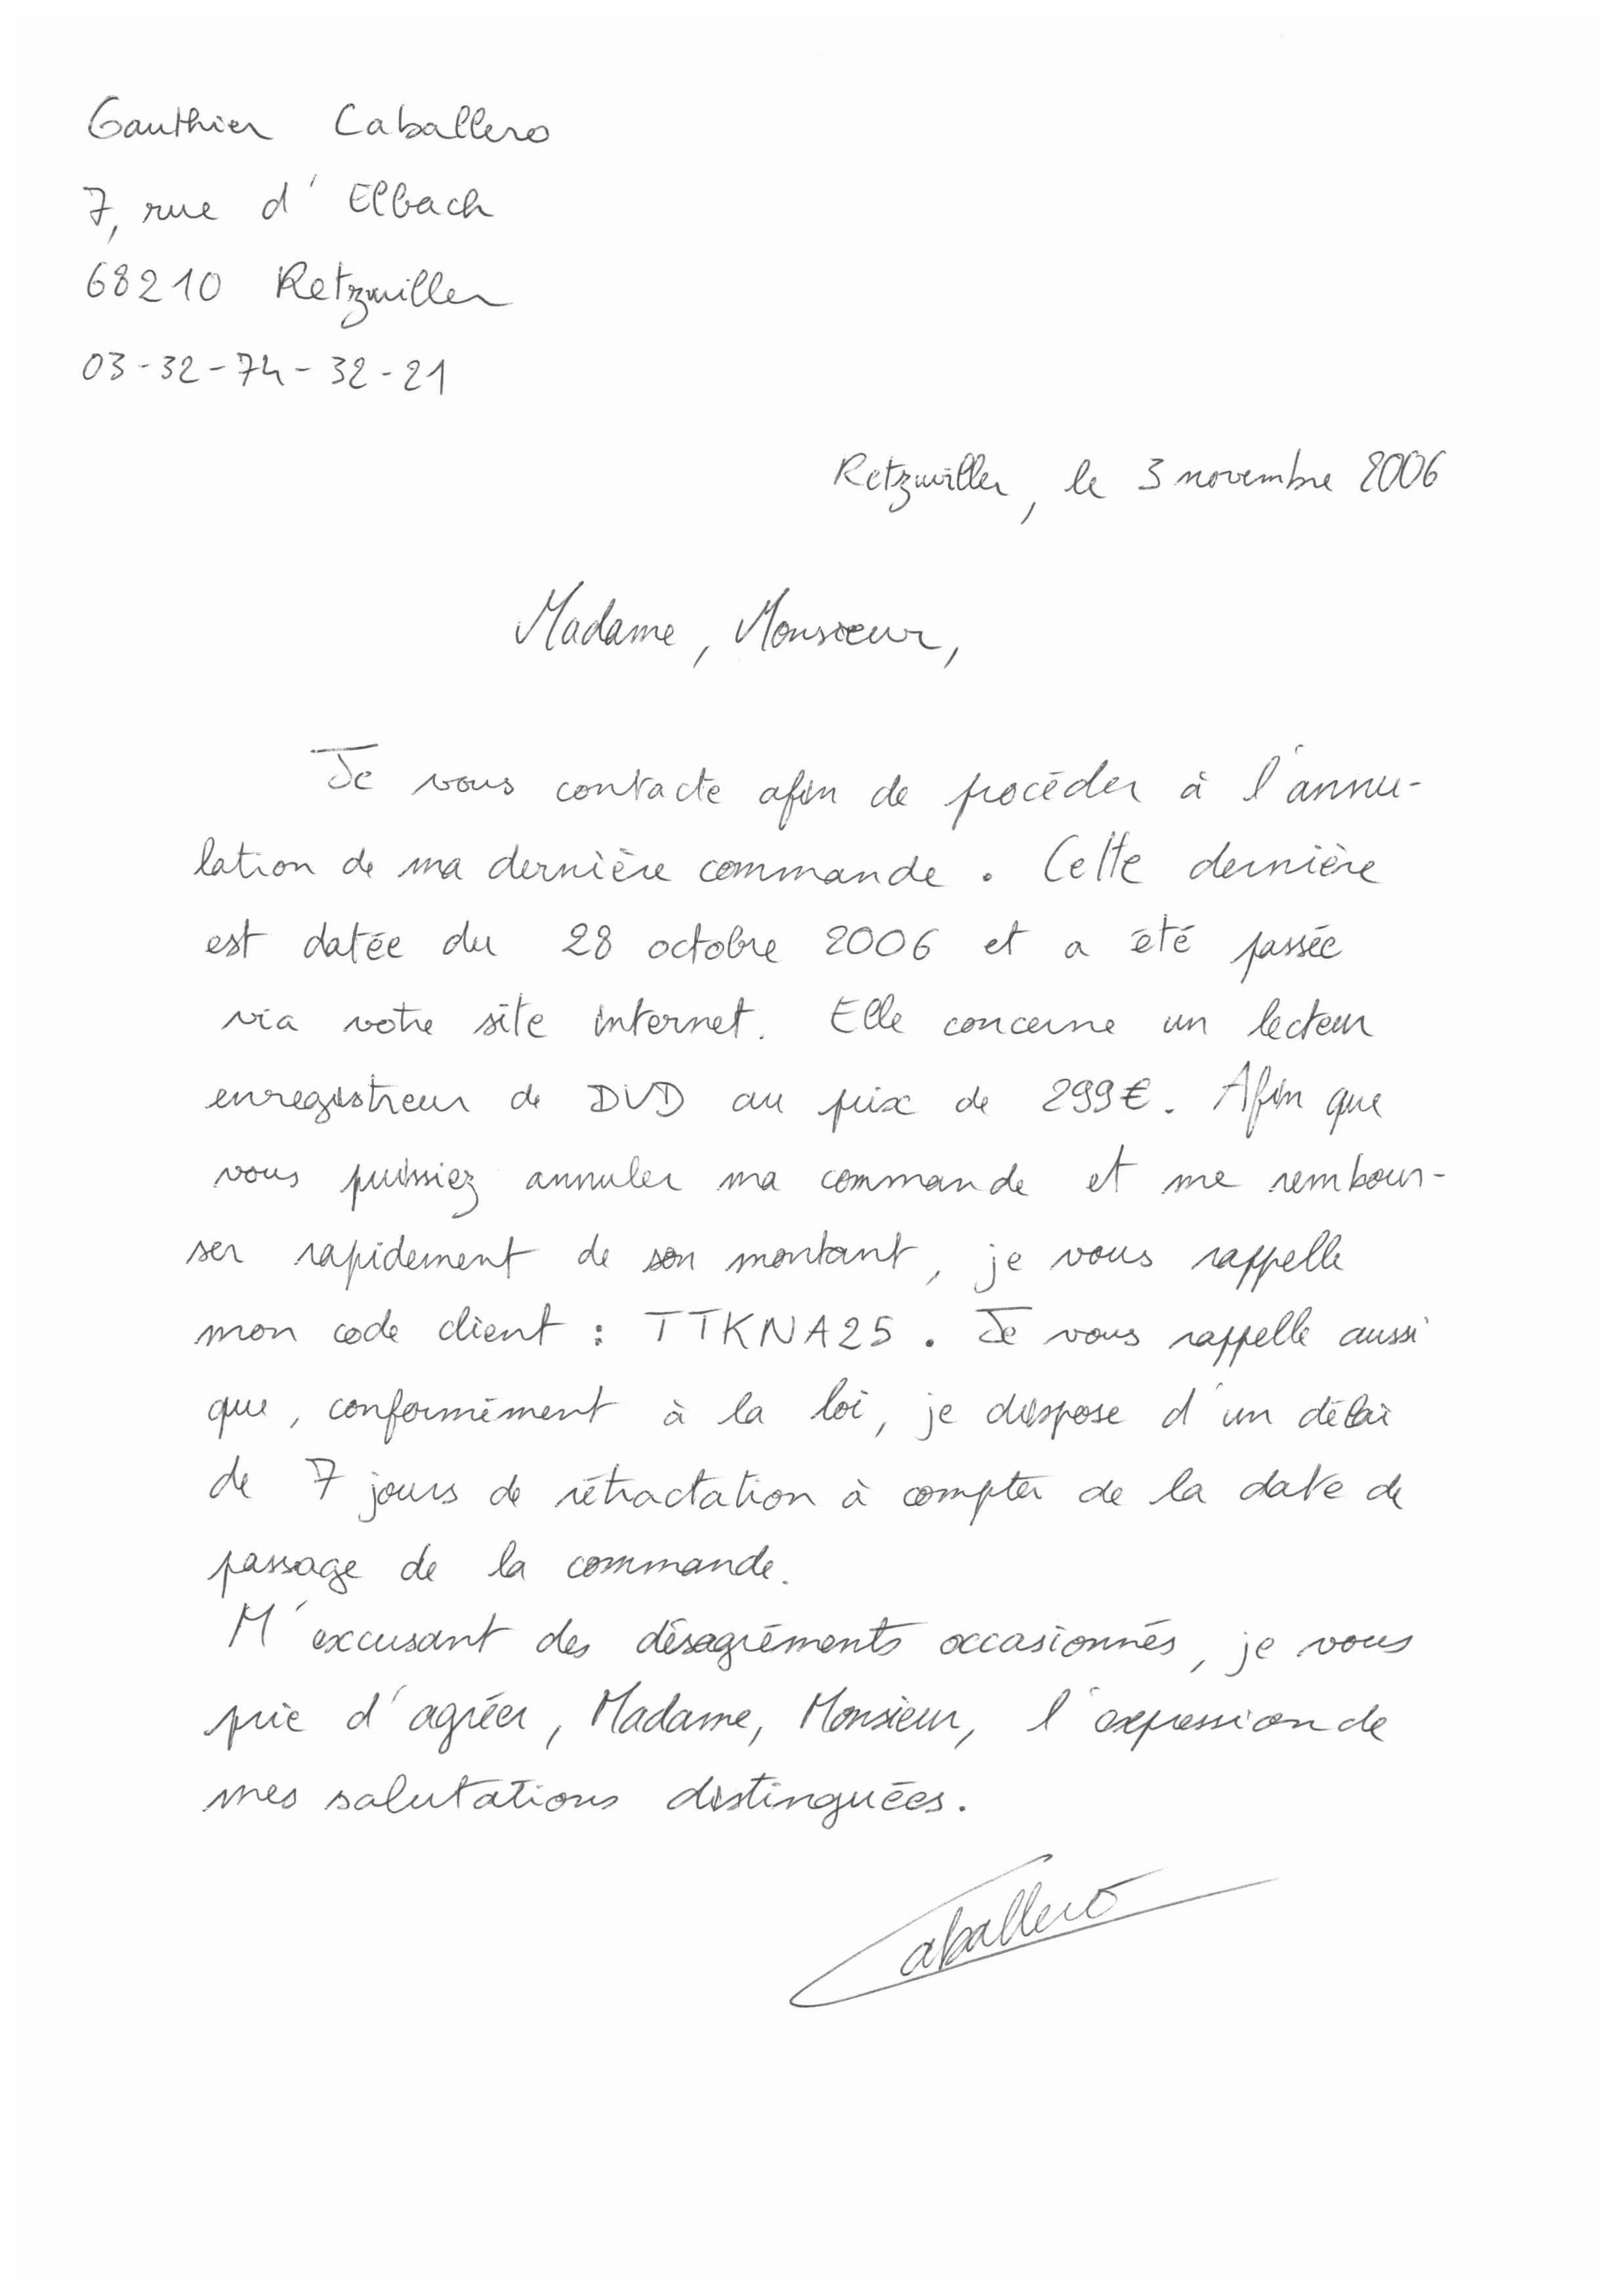 Gauthier Caballero
7, rue d'Elbach
68210 Retzwiller
03-32-74-32-21
Retzwiller, le 3 novembre 2006
Madame, Monsieur,
Je vous contacte afin de procéder à l'annu-
lation de ma dernière commande. Cette dernière
est datée du 28 octobre 2006 et a été passée
via votre site internet. Elle concerne un lecteur
enregistreur de DVD au prix de 299€. Afin que
vous puissiez annuler ma commande et me rembour-
ser rapidement de son montant, je vous rappelle
mon code client : TTKNA25. Je vous rappelle aussi
que, conformément à la loi, je dispose d'un délai
de 7 jours de rétractation à compter de la date de
passage de la commande.
M'excusant des désagréments occasionnés, je vous
prie d'agréer, Madame, Monsieur, l'expression de
mes salutations distinguées.
Caballero